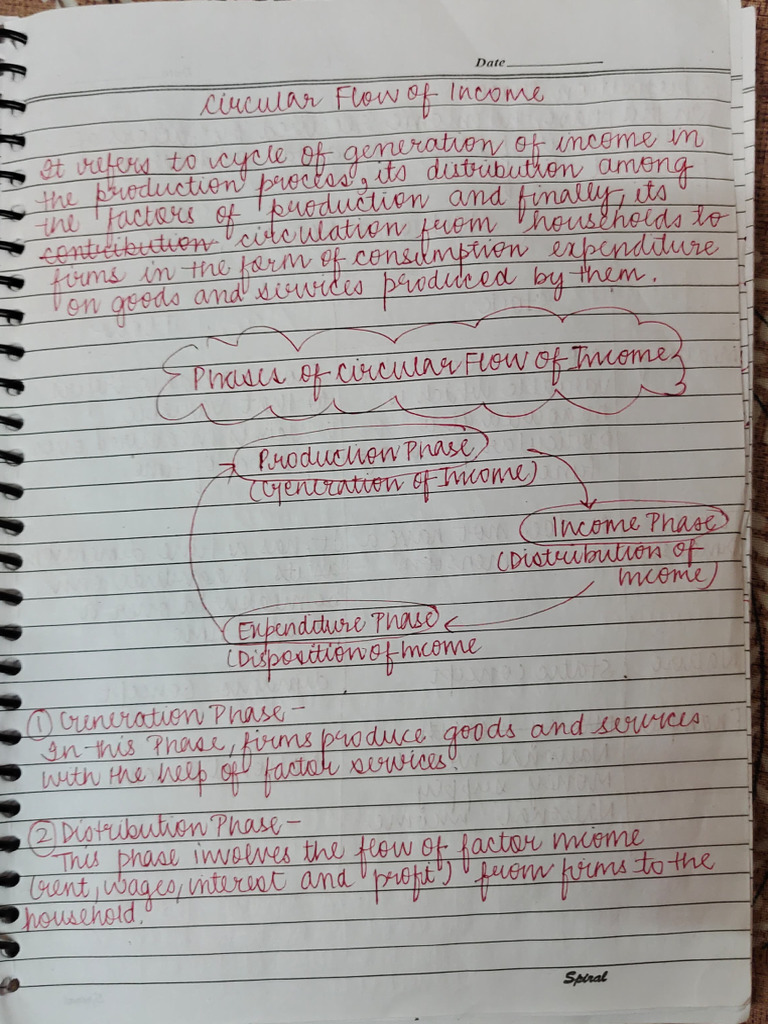 Date
Circular Flow of Income
It refers to cycle of generation of income in
the production process, its distribution among
the factors of production and finally, its
contribution circulation from households to
firms in the form of consumption expenditure
on goods and services produced by them.
Phases of Circular Flow of Income
Production Phase
(Generation of Income)
Income Phase
(Distribution of
income)
Expenditure Phase
(Disposition of Income
① Generation Phase -
In this Phase, firms produce goods and services
with the help of factor services.
② Distribution Phase -
This phase involves the flow of factor income
(rent, wages, interest and profit) from firms to the
household.
Spiral